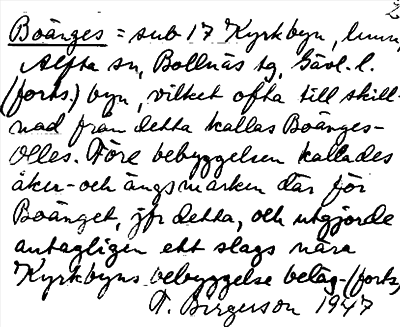 2
Boänges = sub 17 Kyrkbyn, hmn,
Alfta sn, Bollnäs tg, Gävl. l.
(forts.) byn, vilket ofta till skill-
nad från detta kallas Boänges-
Olles. Före bebyggelsen kallades
åker- och ängsmarken där för
Boänget, jfr detta, och utgjorde
antagligen ett slags nära
Kyrkbyns bebyggelse beläg- (forts.
T. Birgerson 1947